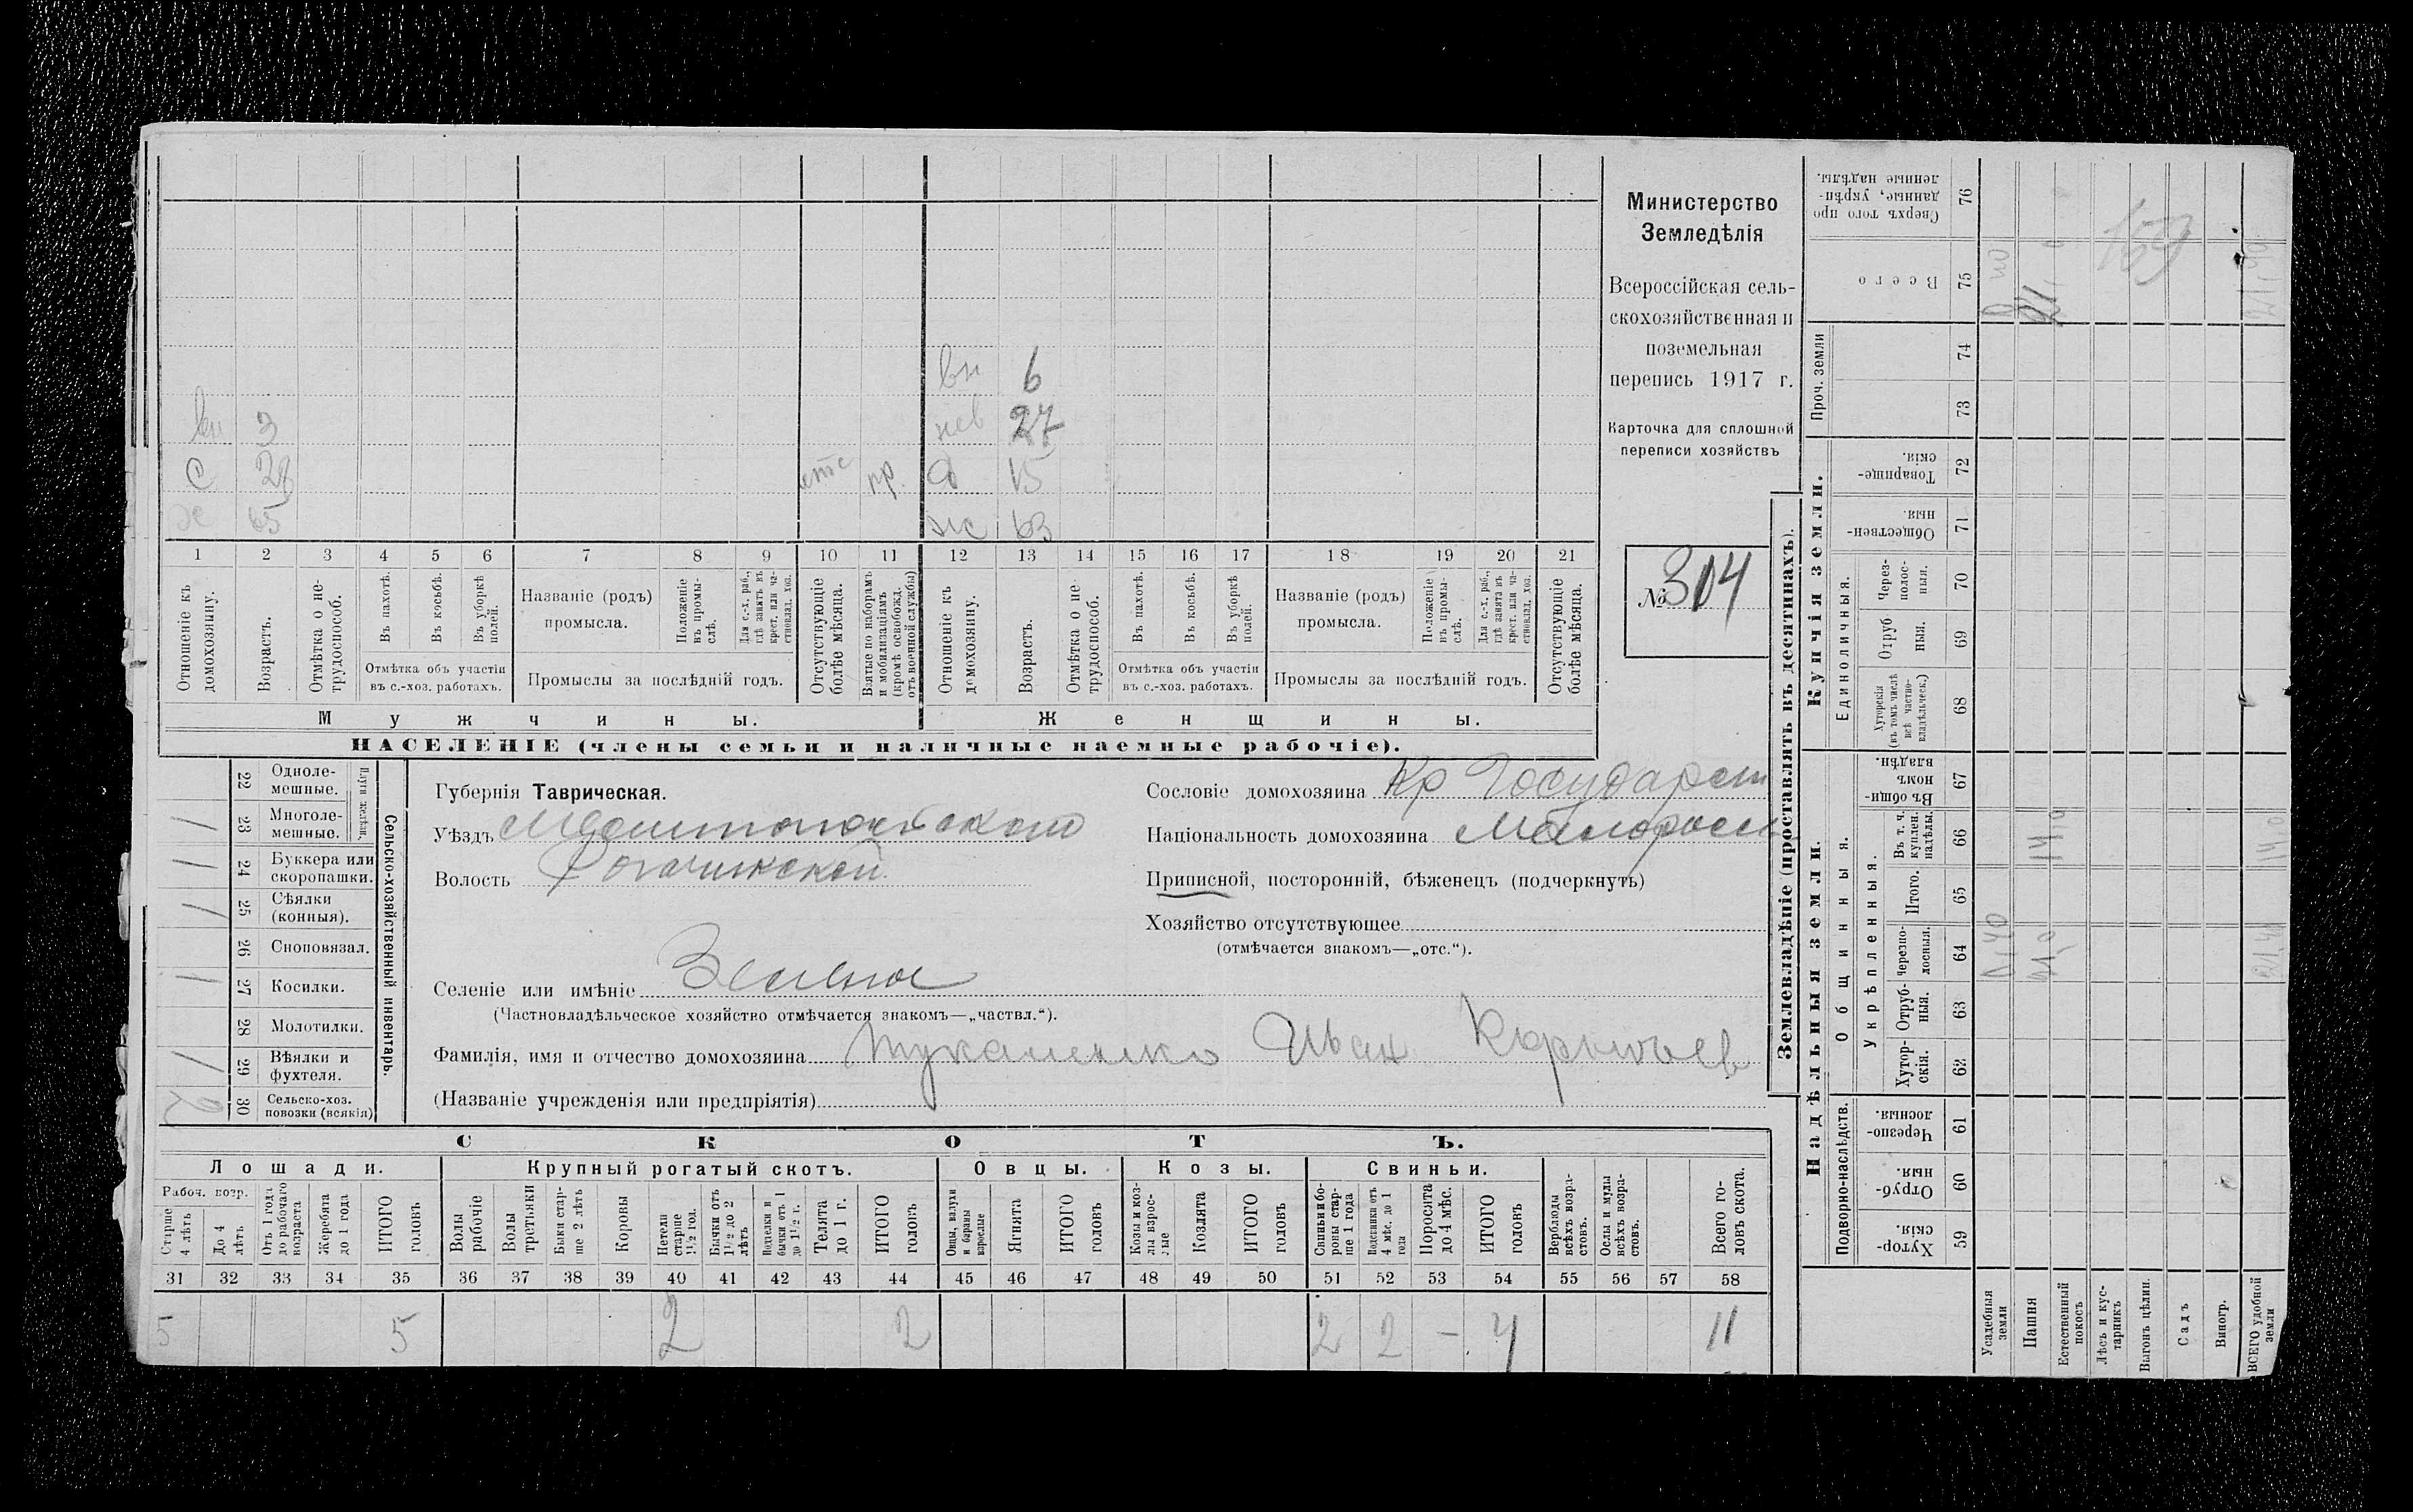 Министерство
Земледѣлія
Всероссійская сель-
скохозяйственная и
поземельная
перепись 1917 г.
Карточка для сплошной
переписи хозяйствъ
№ 304
вн 6
вн 3 27
с 28 пр. 15
65 жс 63
1 2 3 4 5 6 7 8 9 10 11 12 13 14 15 16 17 18 19 20 21
Отношеніе къ домохозяину.
Возрастъ.
Отмѣтка о не-трудоспособ.
Въ пахотѣ.
Въ косьбѣ.
Въ уборкѣ полей.
Отмѣтка объ участіи въ с.-хоз. работахъ.
Названіе (родъ) промысла.
Положеніе въ промы-слѣ.
Для с.-х. раб., гдѣ занятъ въ крест. или ча-стновлад. хоз.
Промыслы за послѣдній годъ.
Отсутствующіе болѣе мѣсяца.
Взятые по наборамъ и мобилизаціямъ (кромѣ освобожд. отъ военной службы)
Отношеніе къ домохозяину.
Возрастъ.
Отмѣтка о не-трудоспособ.
Въ пахотѣ.
Въ косьбѣ.
Въ уборкѣ полей.
Отмѣтка объ участіи въ с.-хоз. работахъ.
Названіе (родъ) промысла.
Положеніе въ промы-слѣ.
Для с.-х. раб., гдѣ занята въ крест. или ча-стновлад. хоз.
Промыслы за послѣдній годъ.
Отсутствующіе болѣе мѣсяца.
Мужчины. Женщины.
НАСЕЛЕНІЕ (члены семьи и наличные наемные рабочіе).
Сельско-хозяйственный инвентарь.
22 Одноле-мешные.
23 Многоле-мешные.
24 Буккера или скоропашки.
25 Сѣялки (конныя).
26 Сноповязал.
27 Косилки.
28 Молотилки.
29 Вѣялки и фухтеля.
30 Сельско-хоз. повозки (всякія)
Губернія Таврическая.
Уѣздъ Мелитопольскаго
Волость Рогачикской
Селеніе или имѣніе Зелена
(Частновладѣльческое хозяйство отмѣчается знакомъ—„частвл.“).
Фамилія, имя и отчество домохозяина Иван
(Названіе учрежденія или предпріятія)
Сословіе домохозяина Кр Государст
Національность домохозяина Малоросс
Приписной, посторонній, бѣженецъ (подчеркнуть)
Хозяйство отсутствующее
(отмѣчается знакомъ—„отс.“).
СКОТЪ.
Лошади. Крупный рогатый скотъ. Овцы. Козы. Свиньи.
Рабоч. возр.
Старше 4 лѣтъ
До 4 лѣтъ
Отъ 1 года до рабочаго возраста
Жеребята до 1 года
ИТОГО головъ
Волы рабочіе
Волы третьяки
Быки стар-ше 2 лѣтъ
Коровы
Нетели старше 1½ год.
Бычки отъ 1½ до 2 лѣтъ
Подтелки и бычки отъ 1 до 1½ г.
Телята до 1 г.
ИТОГО головъ
Овцы, валухи и бараны взрослые
Ягнята
ИТОГО головъ
Козы и коз-лы взрос-лые
Козлята
ИТОГО головъ
Свиньи и бо-ровы стар-ше 1 года
Подсвинки отъ 4 мѣс. до 1 года
Поросята до 4 мѣс.
ИТОГО головъ
Верблюды всѣхъ возра-стовъ.
Ослы и мулы всѣхъ возра-стовъ.
Всего го-ловъ скота.
31 32 33 34 35 36 37 38 39 40 41 42 43 44 45 46 47 48 49 50 51 52 53 54 55 56 57 58
5 5 2 2 2 2 – 4 11
Землевладѣніе (проставлять въ десятинахъ).
Надѣльныя земли. Купчія земли. Проч. земли
Подворно-наслѣдств. Общинныя. Укрѣпленныя. Единоличныя.
59 Хутор-скія.
60 Отруб-ныя.
61 Черезпо-лосныя.
62 Хутор-скія.
63 Отруб-ныя.
64 черезпо-лосныя.
65 Итого.
66 Въ т. ч. куплен. надѣлы.
67 Въ общи-номъ владѣн.
68 Хуторскія (въ томъ числѣ всѣ частно-владѣльческ.)
69 Отруб ныя.
70 Через-полос-ныя.
71 Обществен-ныя.
72 Товарище-скія.
73
74
75 Всего
76 Сверхъ того про данные, укрѣп-ленные надѣлы.
Усадебныя земли 0,40
Пашня 21,0 14,0 21,
Естественный покосъ
Лѣсъ и кус-тарникъ
Выгонъ цѣлин.
Садъ
Виногр.
ВСЕГО удобной земли 21,40 14,0 21,40
159